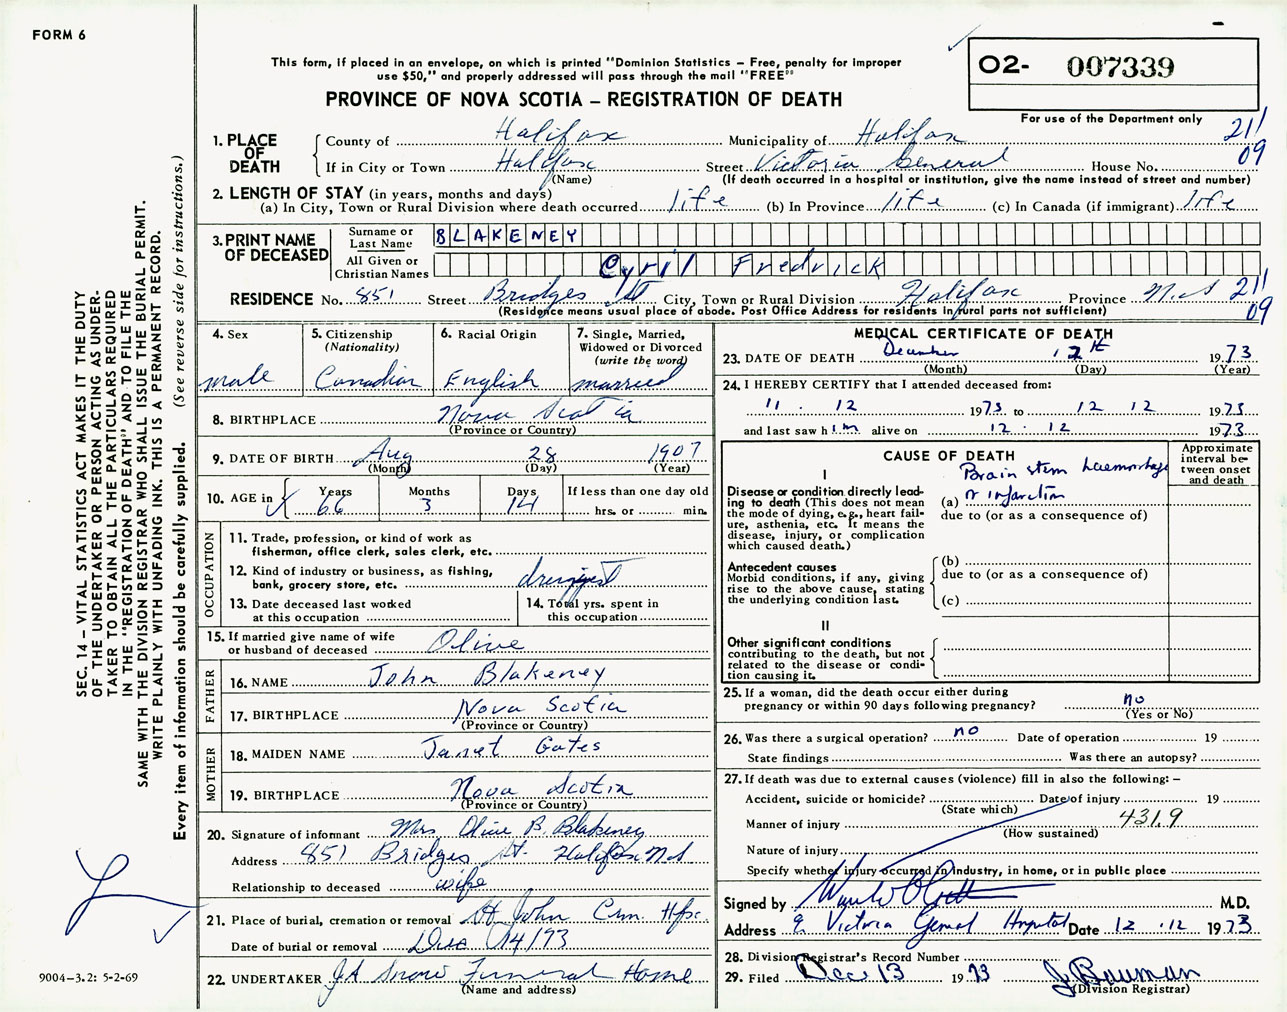 FORM 6
This form, if placed in an envelope, on which is printed "Dominion Statistics – Free, penalty for improper
use $50," and properly addressed will pass through the mail "FREE"
PROVINCE OF NOVA SCOTIA – REGISTRATION OF DEATH
O2- 007339
For use of the Department only
211
09
1. PLACE OF DEATH
County of Halifax Municipality of Halifax
If in City or Town Halifax Street Victoria General House No.
(Name) (If death occurred in a hospital or institution, give the name instead of street and number)
2. LENGTH OF STAY (in years, months and days)
(a) In City, Town or Rural Division where death occurred life (b) In Province life (c) In Canada (if immigrant) life
3. PRINT NAME OF DECEASED
Surname or Last Name BLAKENEY
All Given or Christian Names Cyril Fredrick
RESIDENCE No. 851 Street Bridges St City, Town or Rural Division Halifax Province N.S 211
(Residence means usual place of abode. Post Office Address for residents in rural parts not sufficient) 09
4. Sex
male
5. Citizenship
(Nationality)
Canadian
6. Racial Origin
English
7. Single, Married,
Widowed or Divorced
(write the word)
married
8. BIRTHPLACE Nova Scotia
(Province or Country)
9. DATE OF BIRTH Aug 28 1907
(Month) (Day) (Year)
10. AGE in Years Months Days If less than one day old
66 3 14 hrs. or min.
OCCUPATION
11. Trade, profession, or kind of work as
fisherman, office clerk, sales clerk, etc.
12. Kind of industry or business, as fishing,
bank, grocery store, etc. druggist
13. Date deceased last worked
at this occupation
14. Total yrs. spent in
this occupation
15. If married give name of wife
or husband of deceased Olive
FATHER
16. NAME John Blakeney
17. BIRTHPLACE Nova Scotia
(Province or Country)
MOTHER
18. MAIDEN NAME Janet Gates
19. BIRTHPLACE Nova Scotia
(Province or Country)
20. Signature of informant Mrs Olive B. Blakeney
Address 851 Bridges St. Halifax N.S
Relationship to deceased wife
21. Place of burial, cremation or removal St John Cem. Hfx.
Date of burial or removal Dec 14/73
22. UNDERTAKER J.A. Snow Funeral Home
(Name and address)
MEDICAL CERTIFICATE OF DEATH
23. DATE OF DEATH December 12th 1973
(Month) (Day) (Year)
24. I HEREBY CERTIFY that I attended deceased from:
11 . 12 1973 to 12 12 1973
and last saw him alive on 12 . 12 1973
CAUSE OF DEATH
Approximate
interval be-
tween onset
and death
I
Disease or condition directly lead-
ing to death (This does not mean
the mode of dying, e.g., heart fail-
ure, asthenia, etc. It means the
disease, injury, or complication
which caused death.)
Brain stem haemorrhage
(a) or infarction
due to (or as a consequence of)
Antecedent causes
Morbid conditions, if any, giving
rise to the above cause, stating
the underlying condition last.
(b)
due to (or as a consequence of)
(c)
II
Other significant conditions
contributing to the death, but not
related to the disease or condi-
tion causing it.
25. If a woman, did the death occur either during
pregnancy or within 90 days following pregnancy? no
(Yes or No)
26. Was there a surgical operation? no Date of operation 19
State findings Was there an autopsy?
27. If death was due to external causes (violence) fill in also the following: –
Accident, suicide or homicide? Date of injury 19
(State which)
Manner of injury 431.9
(How sustained)
Nature of injury
Specify whether injury occurred in industry, in home, or in public place
Signed by M.D.
Address Victoria General Hospital Date 12 .12 1973
28. Division Registrar's Record Number
29. Filed Dec 13 1973 J. Bauman
(Division Registrar)
SEC. 14 – VITAL STATISTICS ACT MAKES IT THE DUTY
OF THE UNDERTAKER OR PERSON ACTING AS UNDER-
TAKER TO OBTAIN ALL THE PARTICULARS REQUIRED
IN THE "REGISTRATION OF DEATH" AND TO FILE THE
SAME WITH THE DIVISION REGISTRAR WHO SHALL ISSUE THE BURIAL PERMIT.
WRITE PLAINLY WITH UNFADING INK. THIS IS A PERMANENT RECORD.
Every item of information should be carefully supplied. (See reverse side for instructions.)
9004-3.2: 5-2-69